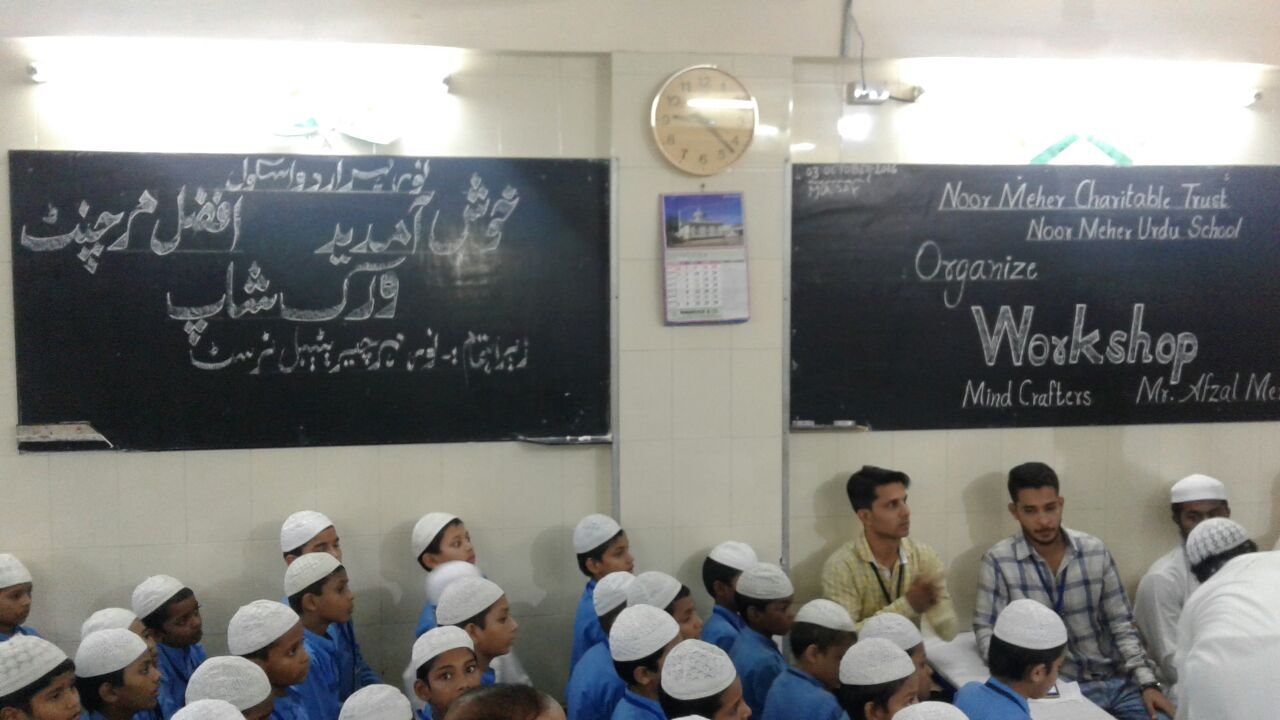 نور مہر اردو اسکول
خوش آمدید افضل مرچینٹ
ورک شاپ
زیر اہتمام :- نور مہر چیریٹیبل ٹرسٹ
12 1 2 3 4 5 6 7 8 9 10 11
03 OCTOBER 2016
MONDAY
Noor Meher Charitable Trust
Noor Meher Urdu School
Organize
Workshop
Mind Crafters Mr. Afzal